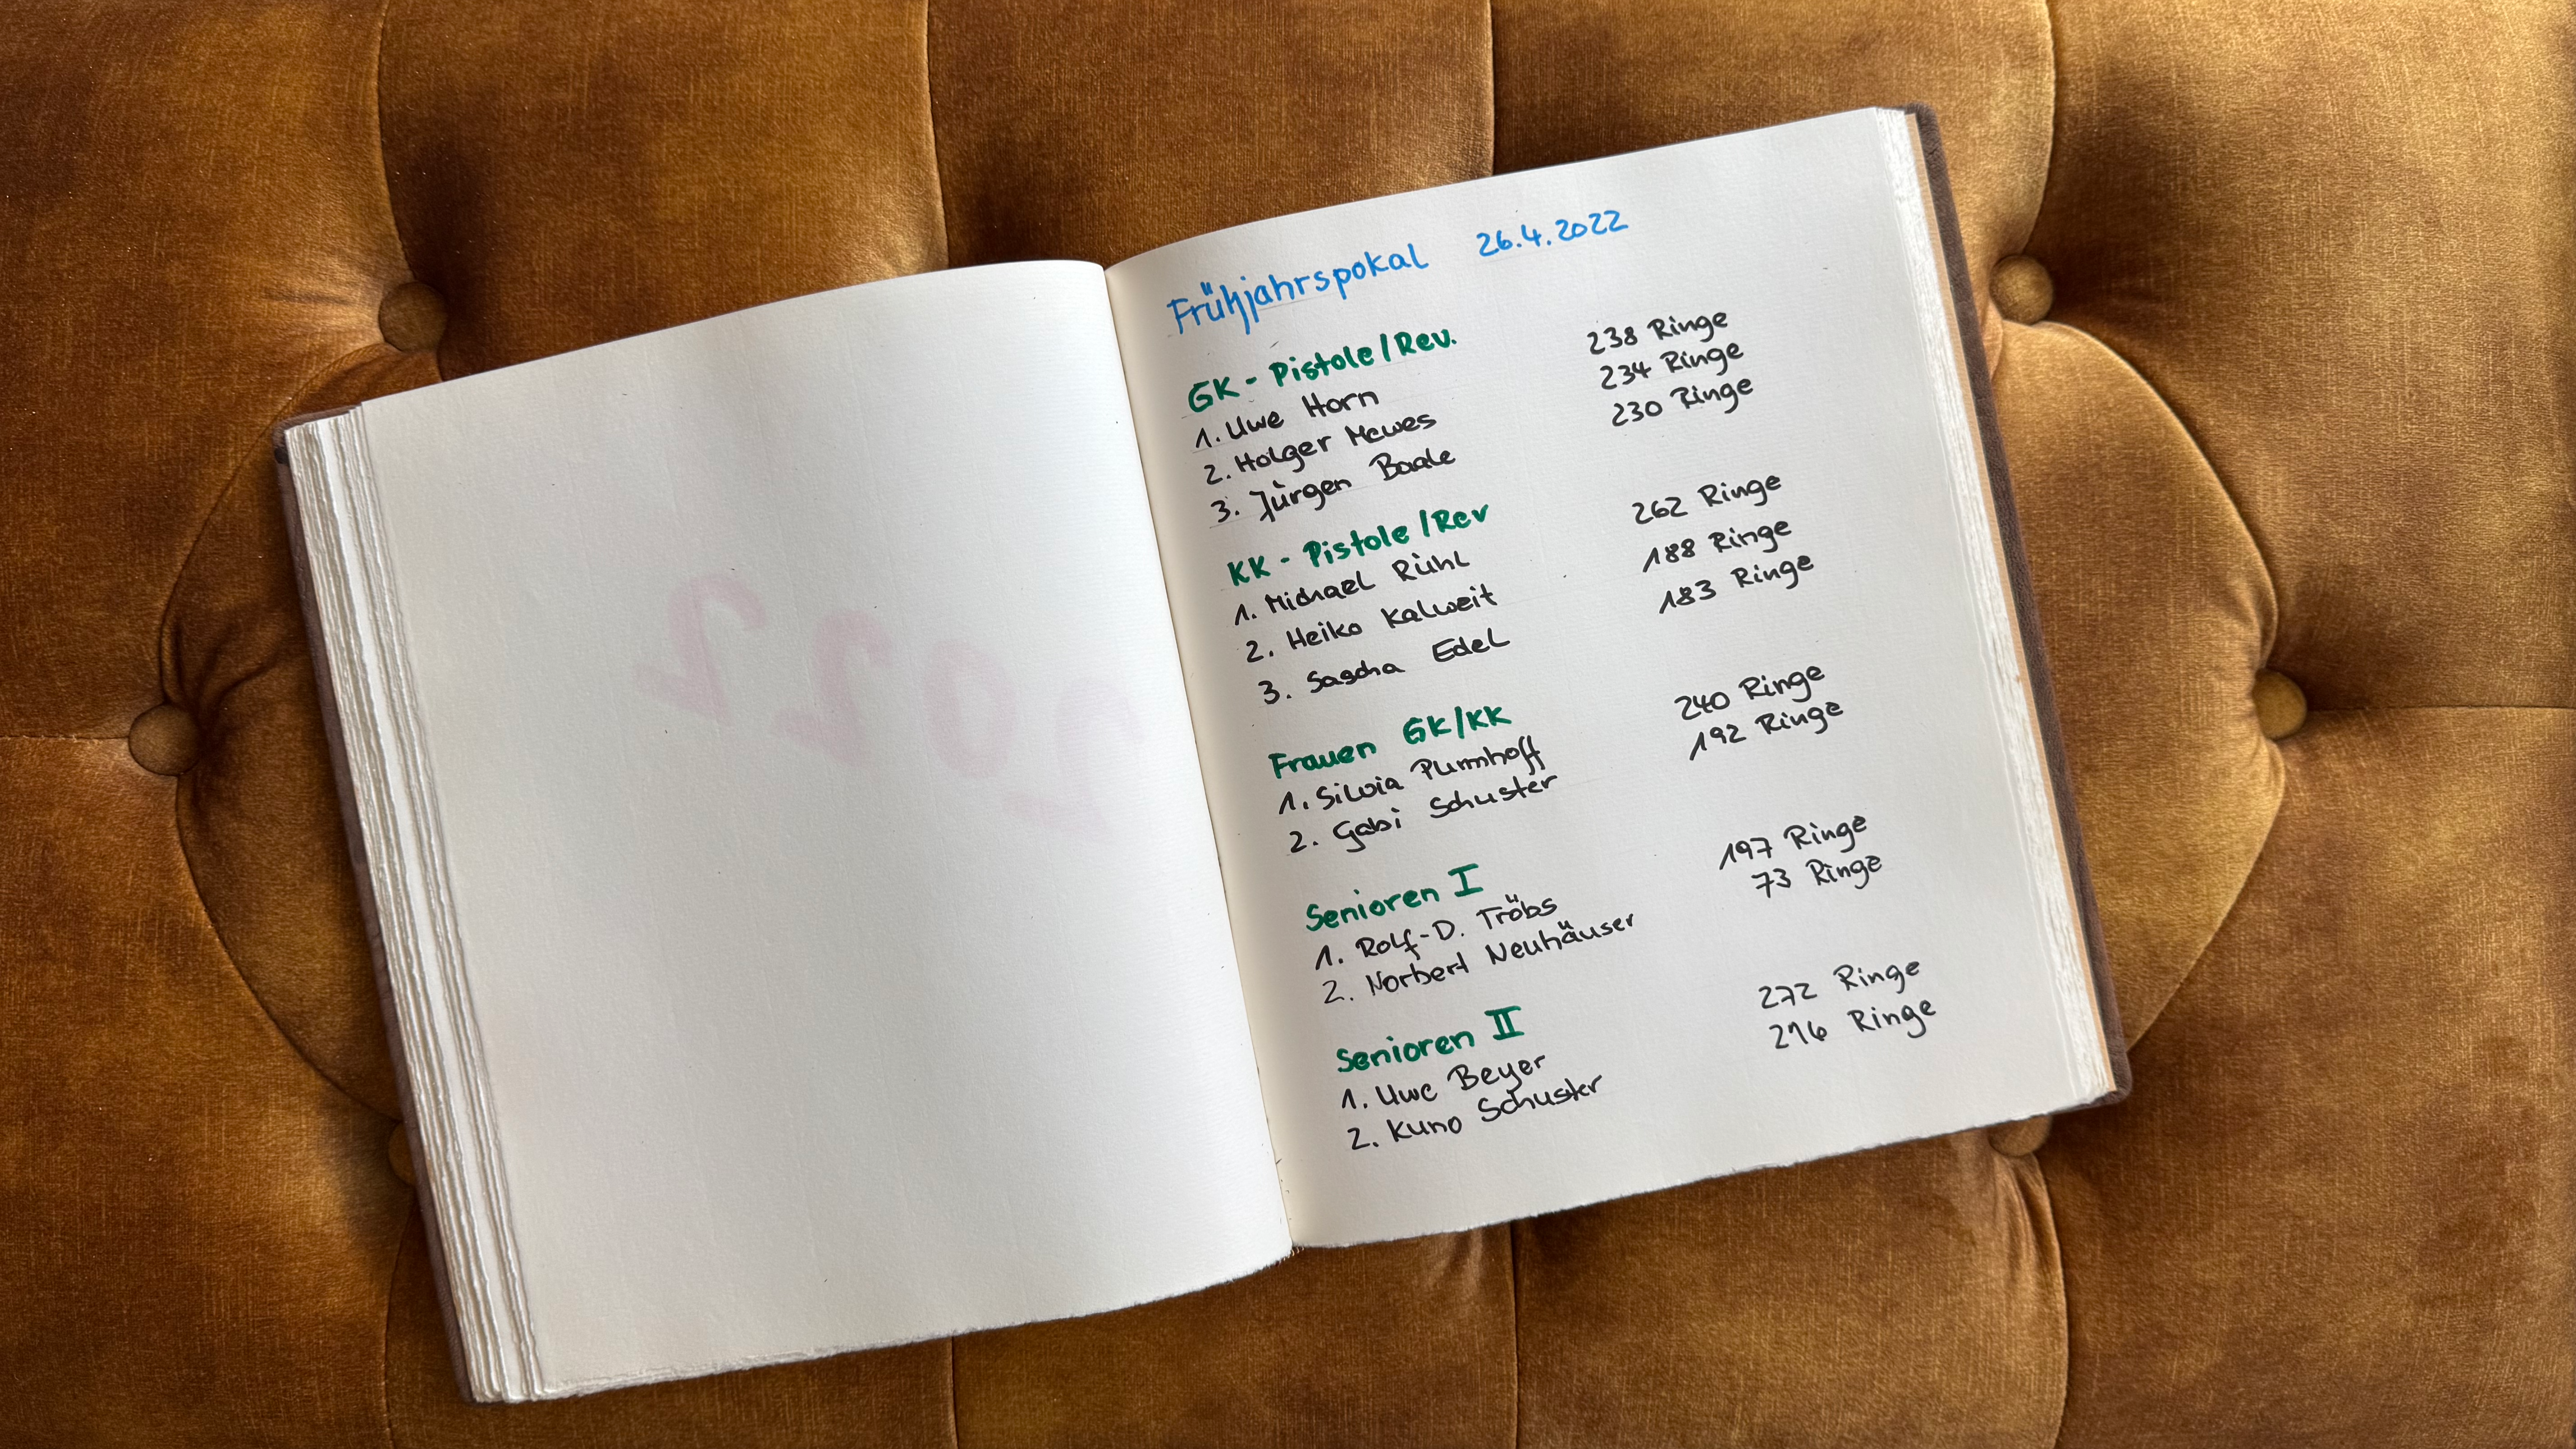 2022
Frühjahrspokal 26.4.2022
GK - Pistole/Rev.
1. Uwe Horn 238 Ringe
2. Holger Mewes 234 Ringe
3. Jürgen Baale 230 Ringe
KK - Pistole/Rev
1. Michael Rühl 262 Ringe
2. Heiko Kalweit 188 Ringe
3. Sascha Edel 183 Ringe
Frauen GK/KK
1. Silvia Purmhoff 240 Ringe
2. Gabi Schuster 192 Ringe
Senioren I
1. Rolf-D. Tröbs 197 Ringe
2. Norbert Neuhäuser 73 Ringe
Senioren II
1. Uwe Beyer 272 Ringe
2. Kuno Schuster 216 Ringe